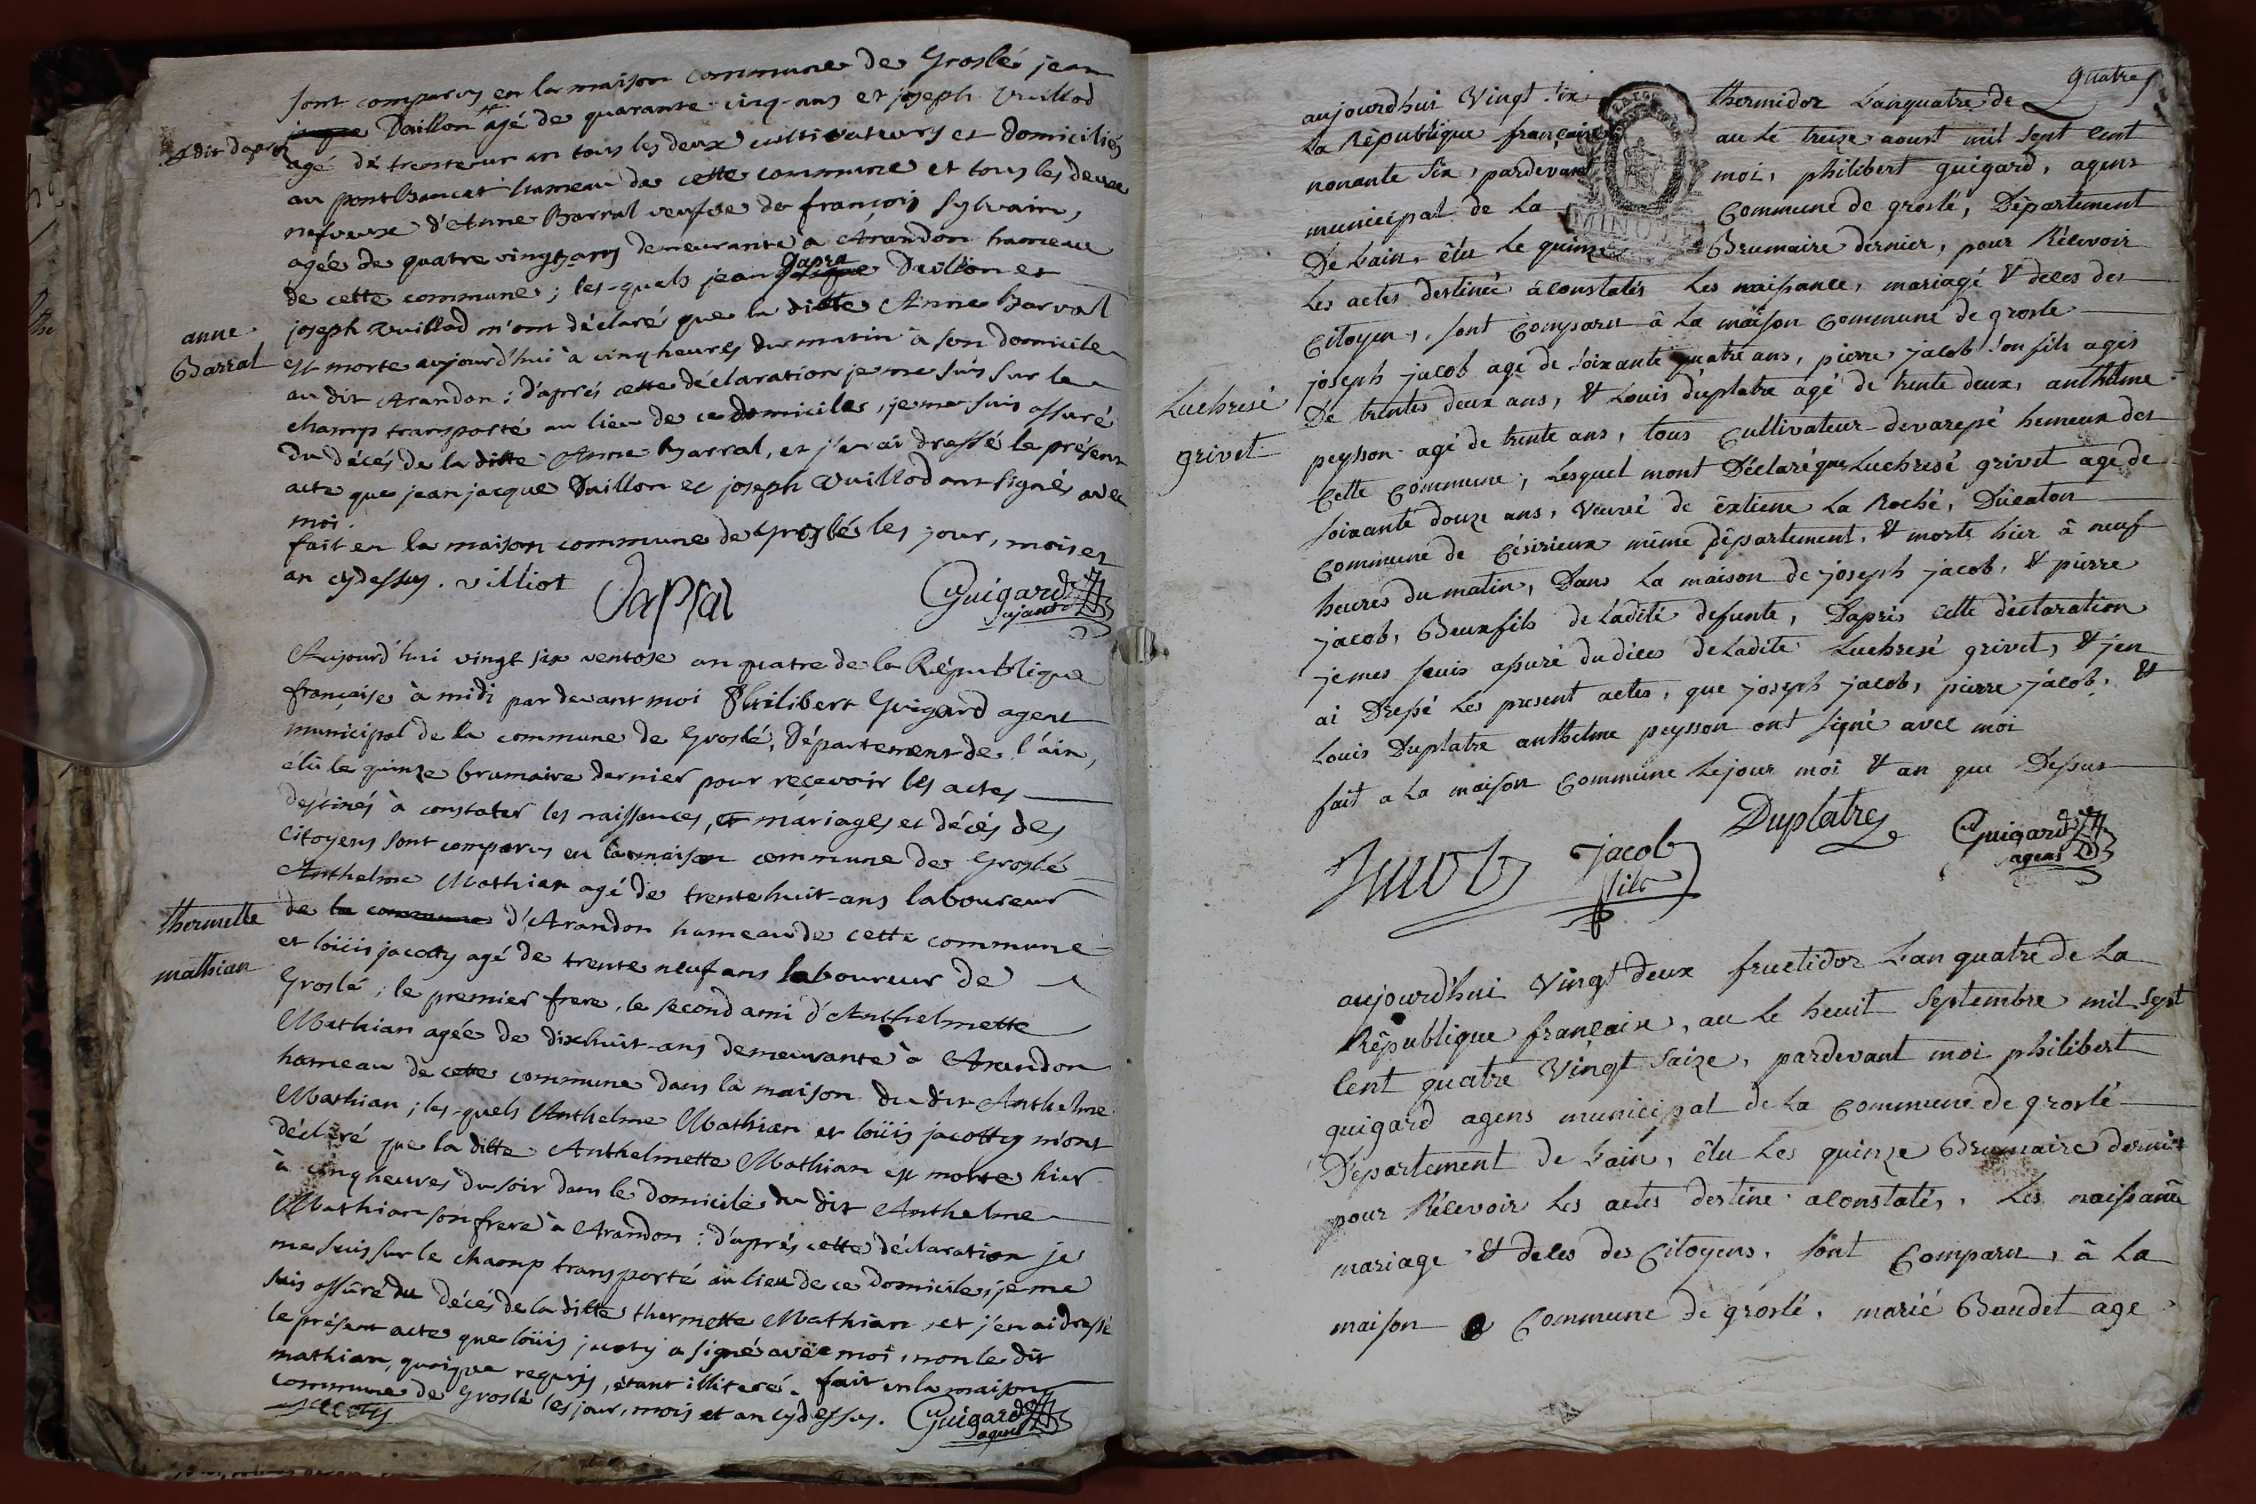 sont comparus en la maison commune de Groslé jean
jacque Daillon agé de quarante-cinq-ans et joseph Vuillod
A dit dapra
agé de trente un an tous les deux cultivateurs et domiciliés
au pont bancet hameau de cette commune et tous les deux
nefveux d'Anne Barral veufve de françois Sylvain,
agée de quatre vingts ans demeurante à Arandon hameau
de cette commune ; les-quels jean dapra jacque Daillon et
joseph Vuillod m'ont déclaré que la ditte Anne Barral
anne
Barral
est morte aujourd'hui à cinq heures du matin à son domicile
au dit Arandon : d'aprés cette déclaration je me suis sur le
champ transporté au lieu de ce domicile, je me suis assuré
du décés de la ditte Anne Barral, et j'en ai dressé le présent
acte que jean jacque Daillon et joseph Vuillod ont signés avec
moi.
fait en la maison commune de Groslé les jour, mois et
an cydessus. villiot
Guigard
ajant
Aujourd'hui vingt six ventose an quatre de la République
française à midi par devant moi Philibert Guigard agent
municipal de la commune de Groslé, Département de l'ain,
élû le quinze brumaire dernier pour recevoir les actes
destinés à constater les naissances, et mariages et décés des
citoyens sont comparus en la maison commune de Groslé
Anthelme Mathian agé de trente huit-ans laboureur
thermette
mathian
de la commune d'Arandon hameau de cette commune
et loüis jacoty agé de trente neuf ans laboureur de
Groslé ; le premier frere, le second ami d'Anthelmette
Mathian agée de dixhuit-ans demeurante à Arandon
hameau de cette commune dans la maison du dit Anthelme
Mathian ; les-quels Anthelme Mathian et loüis jacotty m'ont
déclaré que la ditte Anthelmette Mathian est morte hier
à cinq heures du soir dans le domicile du dit Anthelme
Mathian son frere à Arandon : d'aprés cette déclaration je
me suis sur le champ transporté au lieu de ce domicile, je me
suis assûré du décés de la ditte thermette Mathian et j'en ai dressé
le présent acte que loüis jacoty a signé avec moi, non le dit
mathian, quoique requis, étant illiteré. fait en la maison
commune de Groslé les jour, mois et an cydessus.
jacoty
Guigard
agent
quatre
aujourdhui Vingt six thermidor Lanquatre de
La République française au Le treize aoust mil sept Cent
nonante six, pardevant moi, philibert guigard, agens
municipal de La Commune de groslé, Département
MINUTE
De Lain, élu Le quinze Brumaire dernier, pour Récevoir
Les actes destiné àConstatés Les naissance, mariagé & deces des
Citoyen, sont Comparu à La maison Commune de grosle
joseph jacob agé de soixante quatre ans, pierre jacob son fils agés
Luchresé
grivet
De trentes deux ans, & Louis duplatre agé de trente deux, anthelme
peysson agé de trente ans, tous Cultivateur devarepé hemeux des
Cette Commune, Lesquel mont Déclaré que Luchresé grivet age de
soixante douze ans, veuvé de êxtiene La Roché, Ducaton
Commune de Césirieux même Département, & morte hier à neuf
heures du matin, Dans La maison de joseph jacob, & pierre
jacob, Beuxfils de Ladité defunte, Dapris Cette déclaration
jemes suis assuré du dices deLadite Luchresé grivet, & jen
ai Dressé Les present actes, que joseph jacob, pierre jacob, &
Louis Duplatre anthelme peysson ont signé avec moi
fait a La maison Commune Lejour moi & an que Dessus
Duplatre
Guigard
agens
jacob
fils
aujourd'hui Vingt deux fructidor Lan quatre de La
République française, au Le heuit Septembre mil sept
Cent quatre Vingt Saize, pardevant moi philibert
guigard agens municipal de La Commune de groslé
Département de Lain, élu Les quinze Brumaire dernier
pour Récevoir Les actes destine aConstatés, Les naissance
mariage & deles des Citoyens, sont Comparu, à La
maison Commune de groslé, marié Baudet age